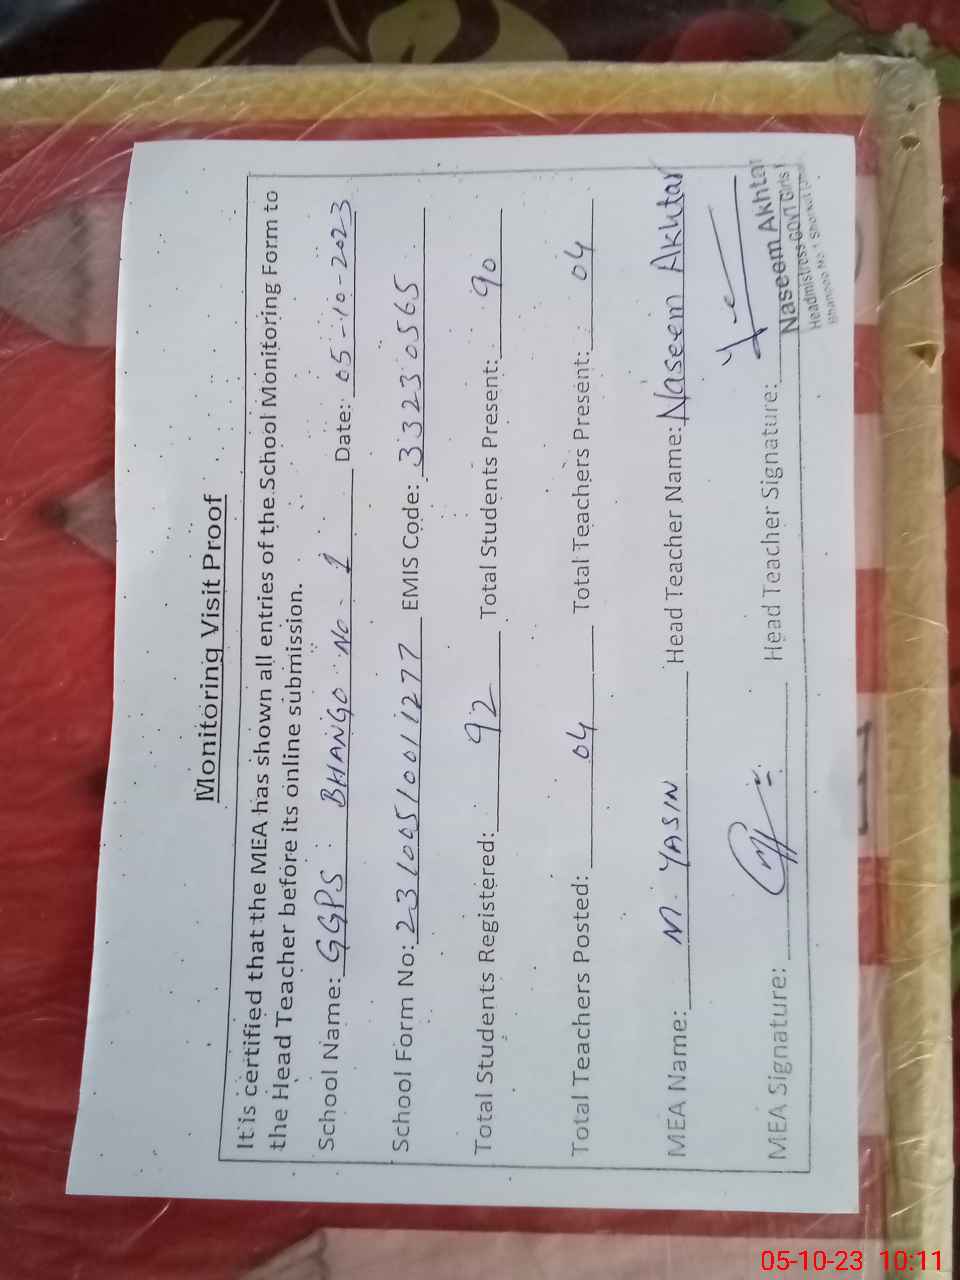 Monitoring Visit Proof
It is certified that the MEA has shown all entries of the School Monitoring Form to
the Head Teacher before its online submission.
School Name: GGPS BHANGO No. 1 Date: 05-10-2023
School Form No: 231005100 11277 EMIS Code: 33230565
Total Students Registered: 92 Total Students Present: 90
Total Teachers Posted: 04 Total Teachers Present: 04
MEA Name: M. YASIN Head Teacher Name: Naseem Akhtar
MEA Signature: Head Teacher Signature:
Naseem Akhtar
Headmistress GOVT Girls
No 1
05-10-23 10:11